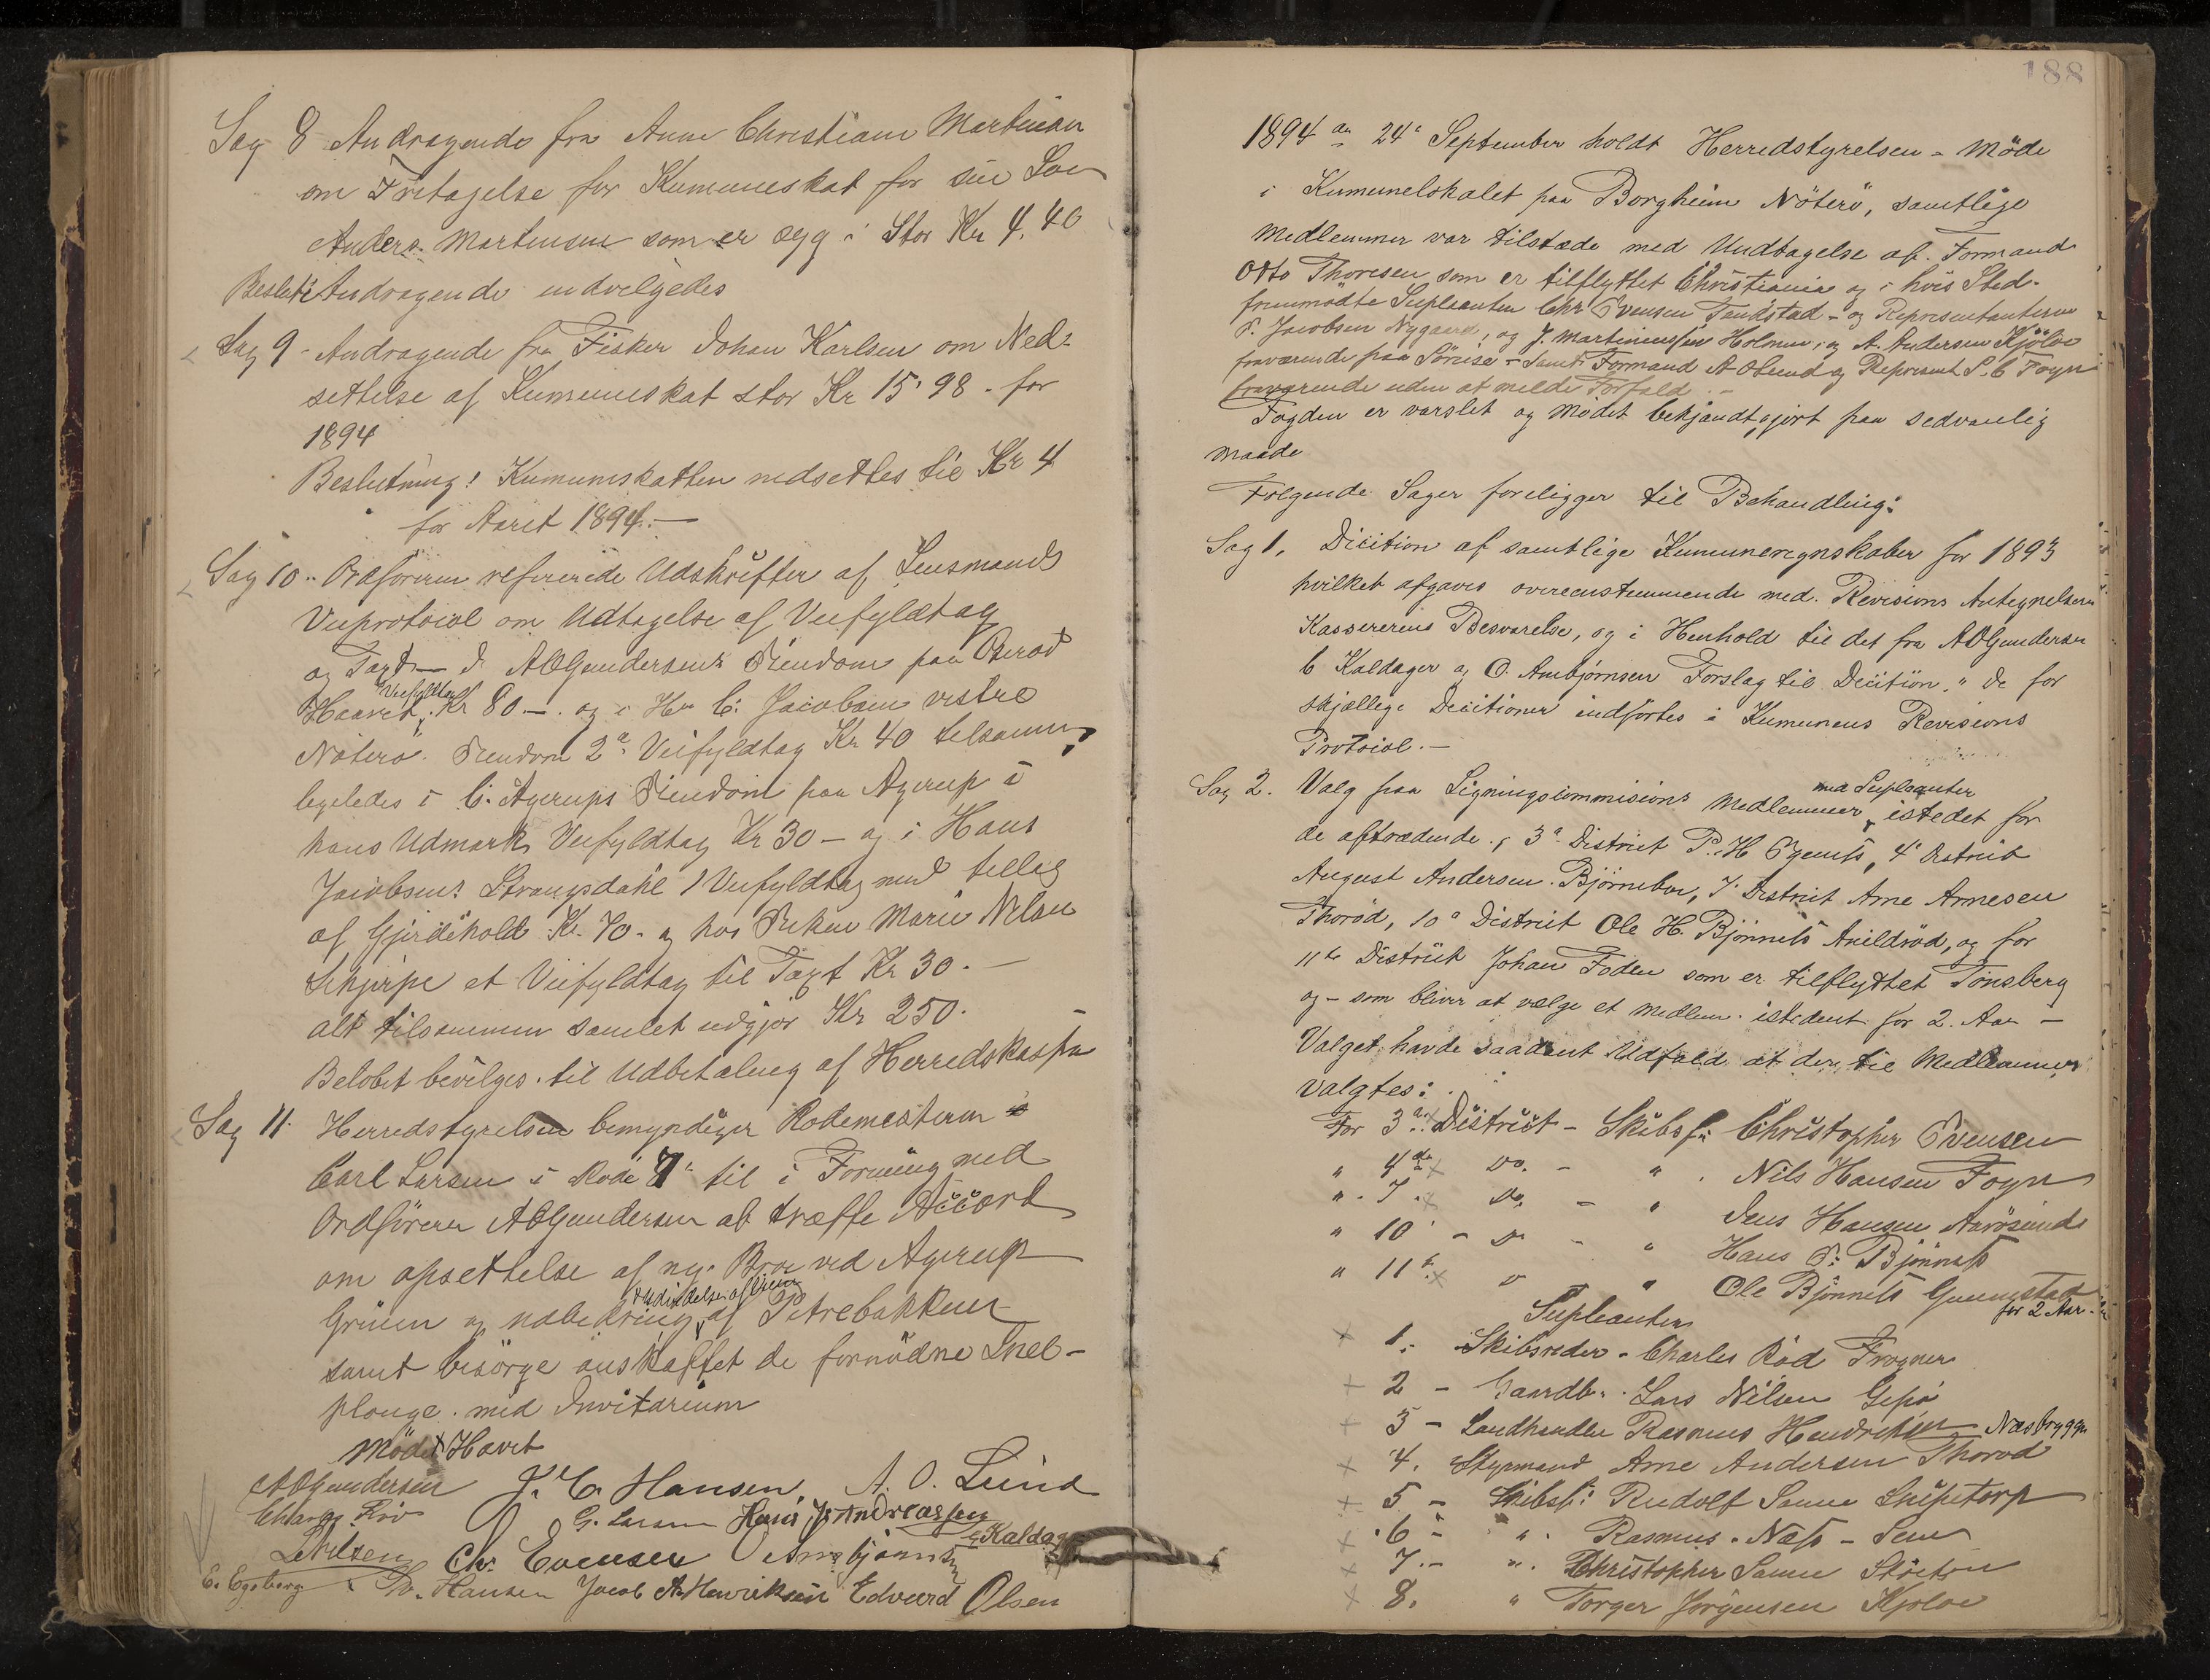 Sag 8 Andragende fra Anne Christiane Martinsen
om Fritagelse for Kumuneskat for sin Søn
Anders Martensen som er syg i Stor Kr 4.40
Beslut: Andragende indvilgedes
Sag 9 - Andragende fra Fisker Johan Karlsen om Ned-
settelse af Kumuneskat stor Kr 15.98 - for
1894
Beslutning: Kumuneskatten nedsettes til Kr 4
for Aaret 1894.—
Sag 10.. Ordføreren refererede Udskrifter af Lensmands
Veiprotocol om Udtagelse af Veifyldtag
og Taxt — I AOGundersens Eiendom paa Oterød
Haavet, Veifyldtag Kr 80.— og i Hr C. Jacobsen vestre
Nøterø Eiendom 2de Veifyldtag Kr 40 tilsammen,
ligeledes i C. Agerups Eiendom paa Agerup i
hans Udmark Veifyldtag Kr 30 — og i Hans
Jacobsens Strangsdahl 1 Veifyldtag med tillæg
af Gjerdehold Kr. 70.- og hos Enken Marie Nilsen
Skjerpe et Veifyldtag til Taxt Kr 30.—
alt tilsammen samlet udgjør Kr 250.
Beløbet bevilges til Udbetaling af Herredskassen
Sag 11. Herredstyrelsen bemyndiger Rodemesteren
Carl Larsen i Rode 7de til i Forening med
Ordføreren AOGundersen at træffe Accord
om opsettelse af ny Bro ved Agerup
Grinen og udbedring & udvidelse af Veien af Petrebakken
samt besørge anskaffet de fornødne Snee-
plouge med Invitarium
Mødet Hævet
AOGundersen J. C. Hansen. A. O. Lund
Charles Röd G. Larsen Hans J. Andreassen
L Nilsen Chr. Evensen O Ambjörnsen C Kaldager
E. Egeberg Th. Hansen Jacob A. Henriksen Edvard Olsen
188
1894 den 24de September holdt Herredstyrelsen - Møde
i Kumunelokalet paa Borgheim Nöterö, samtlige
Medlemmer var tilstede med Undtagelse af Formand
Otto Thoresen som er tilflyttet Christiania og i hvis Sted
fremmødte Supleanten Chr Evensen Tandstad - og Representanterne
P. Jacobsen Nygaard, og J. Martiniussen Holmen, og A. Andersen Kjöloe
fraværende paa Söreise - Samt Formand A O Lund og Represent S. C Foyn
fraværende uden at melde Forfald. —
Fogden er varslet og Mödet bekjendtgjort paa sedvanlig
Maade
Følgende Sager foreligger til Behandling:
Sag 1. Dicition af samtlige Kumuneregnskaber for 1893
hvilket afgaves overeenstemmende med Revisions Antegnelsen
Kassererens Besvarelse, og i Henhold til det fra AOGundersen
C Kaldager og O. Ambjørnsen Forslag til Dicition." De for
skjællige Dicitioner indførtes i Kumunens Revisions
Protocol.—
Sag 2. Valg paa Ligningscommisions Medlemmer med Supleanter istedet for
de aftrædende, 3de District P. H Ogents, 4de Distrikt
August Andersen Bjørnebo, 7de District Arne Arnesen
Thorød, 10de District Ole H. Bjönnes Arildröd, og for
11te District Johan Foden som er tilflyttet Tönsberg
og - som bliver at vælge et Medlem istedent for 2. Aar —
Valget havde saadant Udfald at der til Medlemmer
Valgtes:
For 3de District - Skibsf: Christopher Evensen
" 4de Do. - " Nils Hansen Foyn
" 7 Do. - " Jens Hansen Aarøsund
" 10 - Do - " Hans P. Bjönnes
" 11te Do " Ole Bjönnes Gunnestad
for 2 Aar.
Supleanter
1. Skibsreder - Charles Röd Trogner
2 - Gaardb. Lars Nilsen Gipö
3 - Landhandler Rasmus Hendriksen Næsbryggen
4. Styrmand Arne Andersen Thorød
5 - Skibsf: Rudolf Sanne Snipetorp
6 - " Rasmus Næss - Sem
7.- " Christopher Sanne
8. " Torger Jørgensen Kjöloe